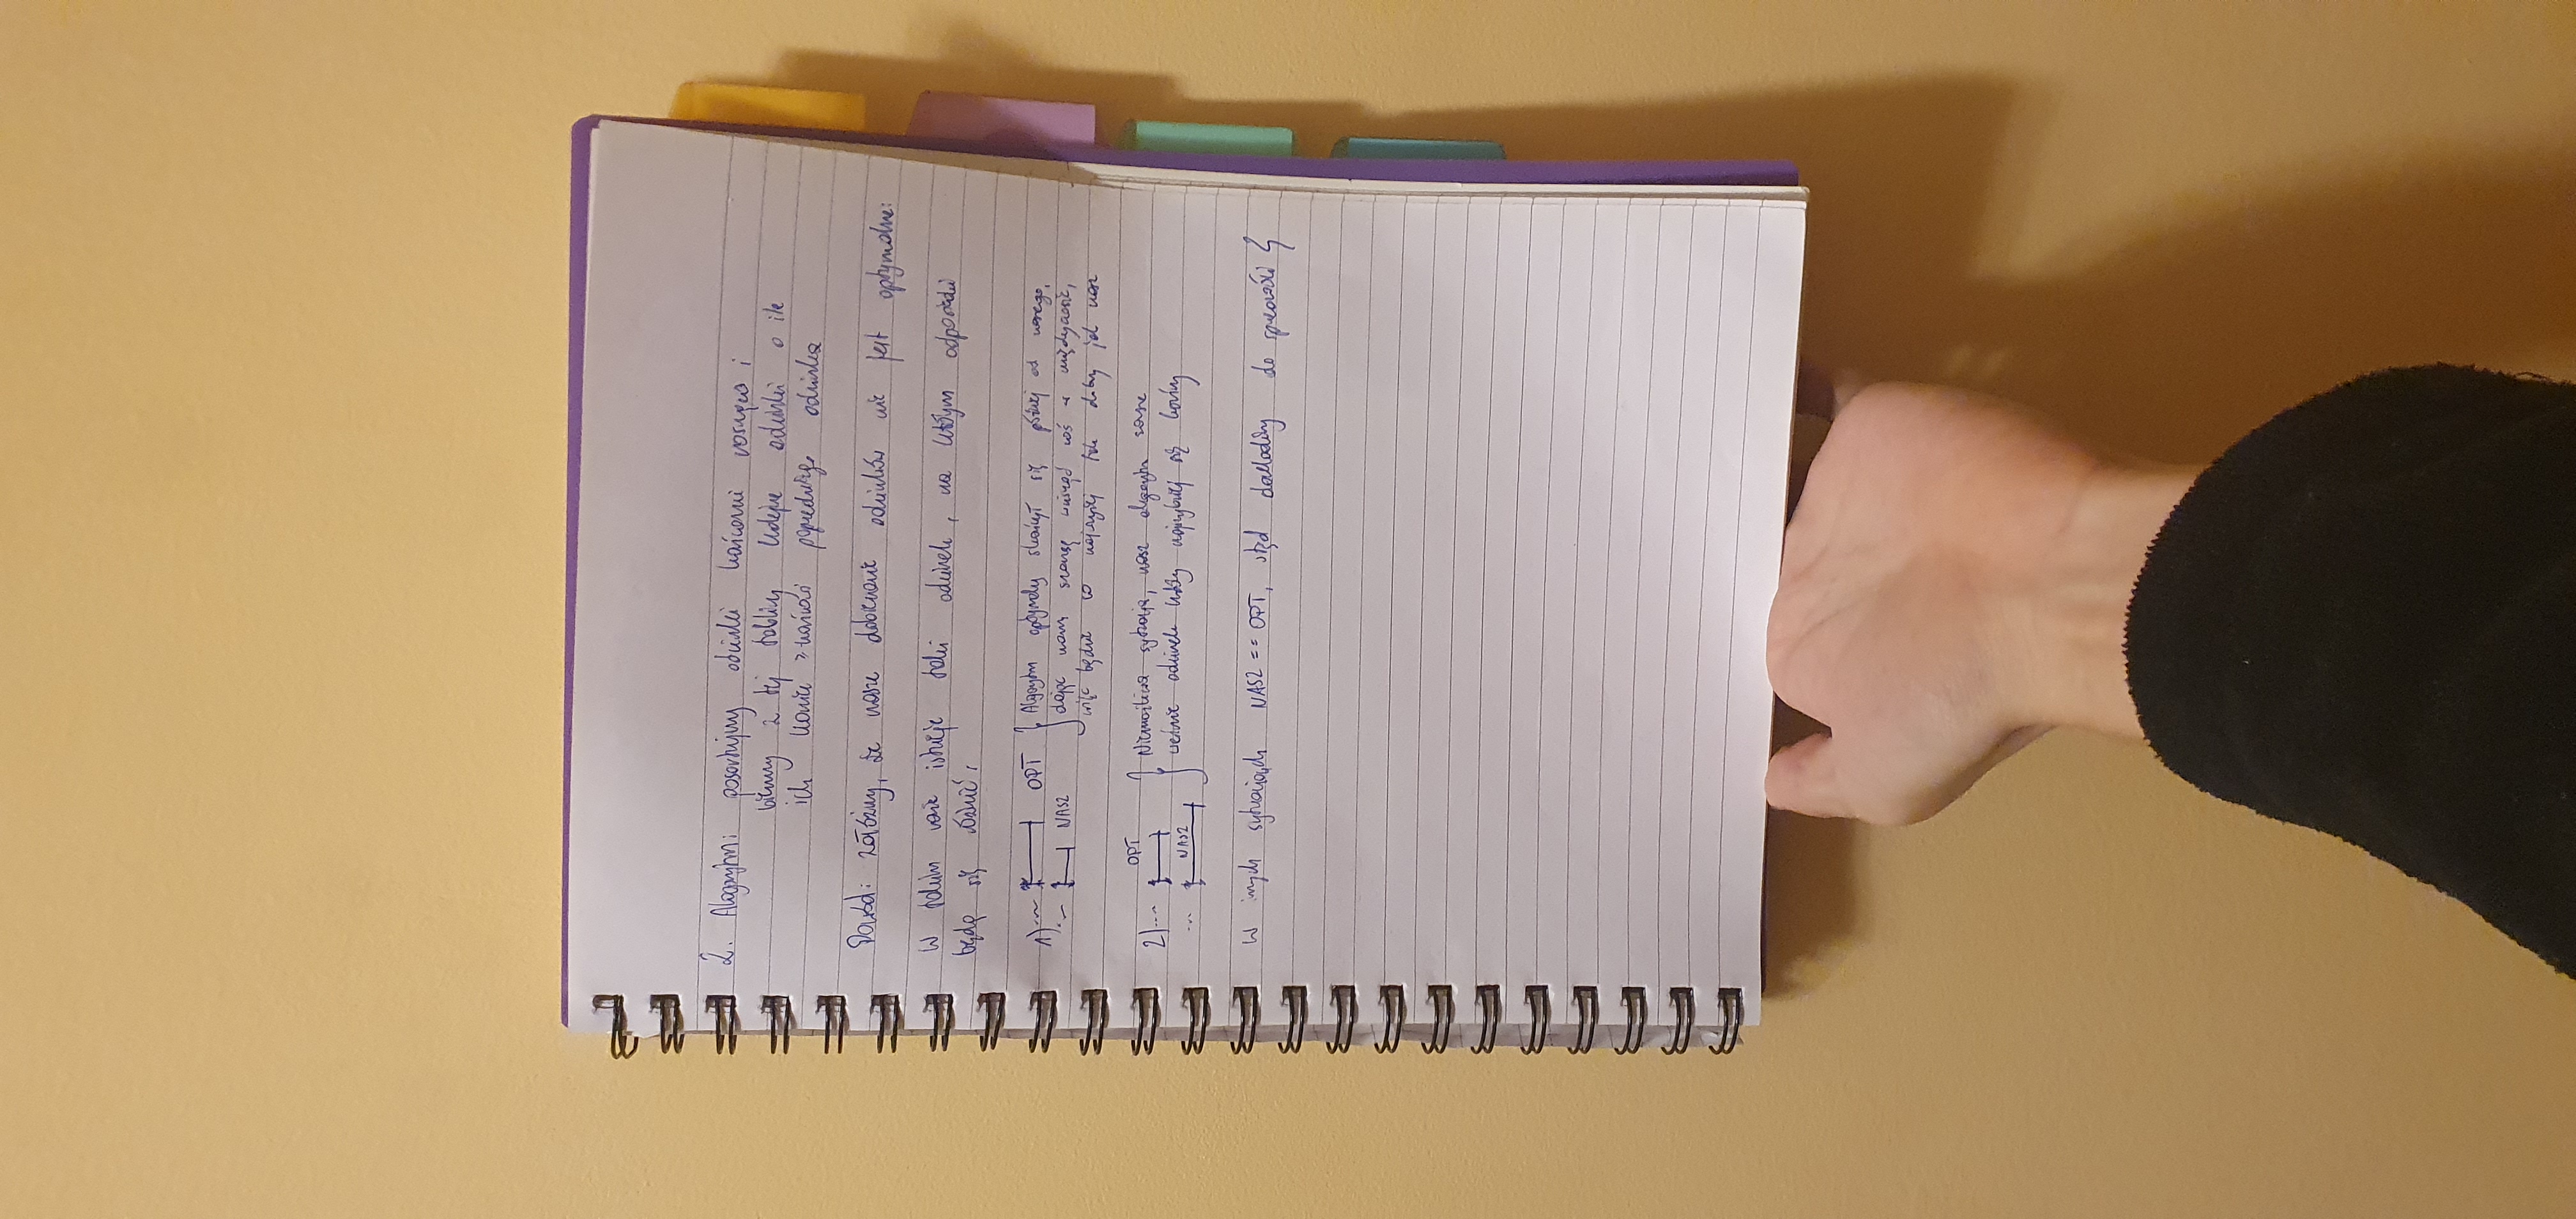 2. Algorytm: posortujmy odcinki końcami rosnąco i
bierzmy z tej tablicy kolejne odcinki o ile
ich koniec > końcówki poprzedniego odcinka
Dowód: załóżmy, że nasze dobieranie odcinków nie jest optymalne:
W takim razie istnieje taki odcinek, na którym odpowiedzi
będą się różnić:
1) ... OPT Algorytm optymalny skończył się później od naszego,
... NASZ dając nam szansę wziąć coś w międzyczasie,
więc będzie co najwyżej tak dobry jak nasz
OPT
2) ... Niemożliwa sytuacja, nasz algorytm zawsze
... NASZ weźmie odcinek który najszybciej się kończy
W innych sytuacjach NASZ == OPT, stąd dochodzimy do sprzeczności